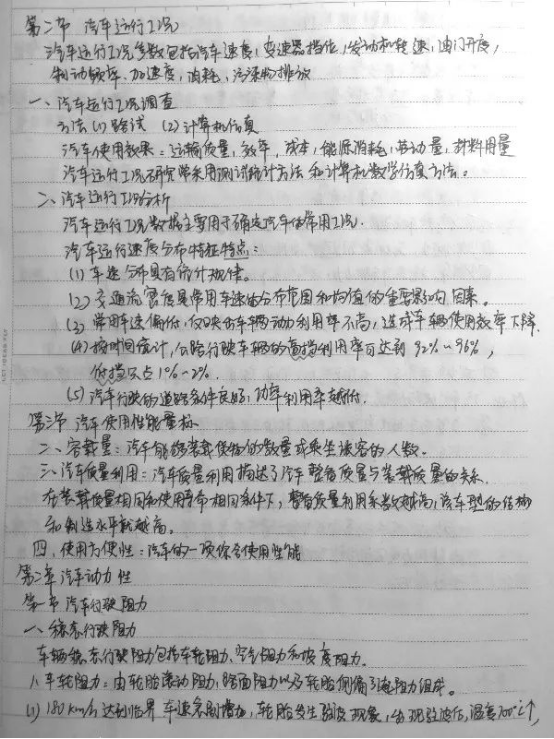 第二节 汽车运行工况
汽车运行工况参数包括汽车速度，变速器挡位，发动机转速，油门开度，
制动频率，加速度，油耗，污染物排放
一、汽车运行工况调查
方法 (1) 路试 (2) 计算机仿真
汽车使用效果：运输质量，效率，成本，能源消耗，劳动量，材料用量
汽车运行工况研究常采用测试统计方法和计算机数学仿真方法。
二、汽车运行工况分析
汽车运行工况数据主要用于确定汽车的常用工况.
汽车运行速度分布特征特点：
(1) 车速分布具有统计规律。
(2) 交通流密度是常用车速的分布范围和均值的重要影响因素.
(3) 常用车速偏低，仅映出车辆动力利用率不高，造成车辆使用效率下降.
(4) 按时间统计，公路行驶车辆的高挡利用率可达到92%~96%，
低挡只占1%~2%.
(5) 汽车行驶的道路条件良好，功率利用率越低.
第三节 汽车使用性能量标
二、容载量：汽车能够装载货物的数量或乘坐旅客的人数。
三、汽车质量利用：汽车质量利用描述了汽车整备质量与装载质量的关系.
在装载质量相同和使用寿命相同条件下，整备质量利用系数越高，汽车型的结构
和制造水平就越高。
四、使用方便性：汽车的一项综合使用性能
第二章 汽车动力性
第一节 汽车行驶阻力
一、稳态行驶阻力
车辆稳态行驶阻力包括车轮阻力、空气阻力和坡度阻力。
1、车轮阻力：由轮胎滚动阻力，路面阻力以及轮胎侧偏引起阻力组成.
(1) 180 km/h 达到临界车速急剧增加，轮胎发生驻波现象，出现驻波后，温度100℃↑，